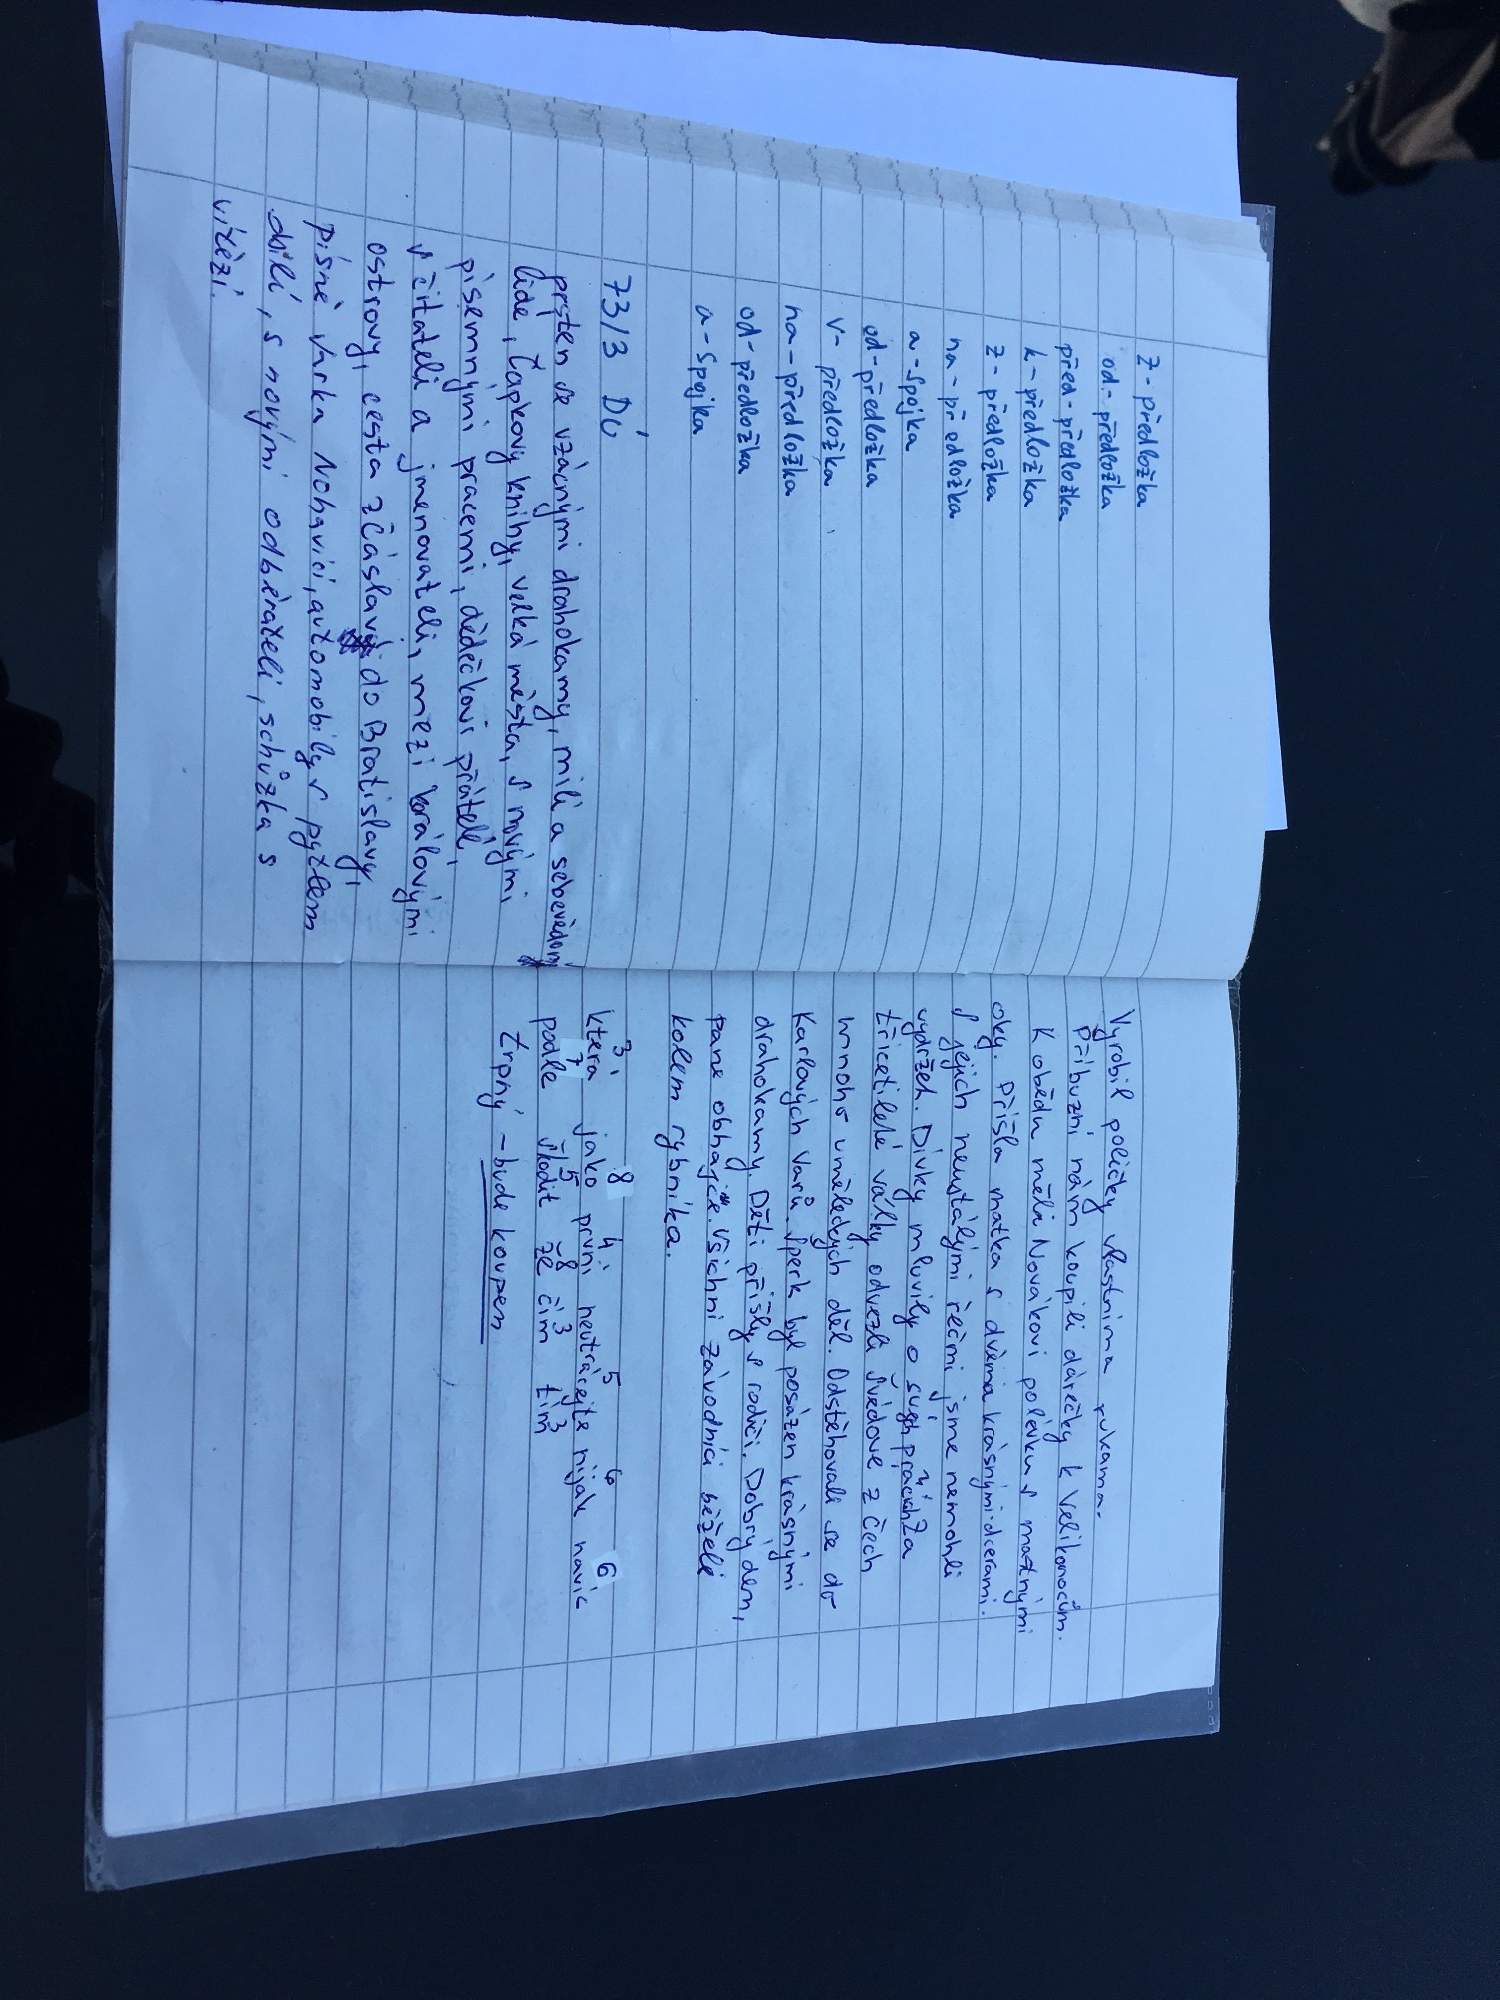 z - předložka
od - předložka
před - předložka
k - předložka
z - předložka
na - předložka
a - spojka
od - předložka
v - předložka
na - předložka
od - předložka
a - spojka
73/3 DÚ
prsten se vzácnými drahokamy, milí a sebevědomí
lidé, Čapkovy knihy, velká města, s novými
písemnými pracemi, dědečkovi přátelé,
s čitateli a jmenovateli, mezi korálovými
ostrovy, cesta z Čáslavi do Bratislavy,
písně Jarka Nohavici, automobily s pytlem
obilí, s novými odběrateli, schůzka s
vítězi.
Vyrobil poličky vlastníma rukama.
Příbuzní nám koupili dárečky k Velikonocům.
K obědu měli Novákovi polévku s mastnými
oky. Přišla matka s dvěma krásnými dcerami.
S jejich neustálými řečmi jsme nemohli
vydržet. Dívky mluvily o svých pracích. Za
třicetileté války odvezli Švédové z Čech
mnoho uměleckých děl. Odstěhovali se do
Karlových Varů. Šperk byl posázen krásnými
drahokamy. Děti přišly s rodiči. Dobrý den,
pane obhajče. Všichni závodníci běželi
kolem rybníka.
3 8 4 5 6 6
která jako první neutrácejte nijak navíc
7 5 8 3 3
podle škodit že čím tím
trpný - bude koupen